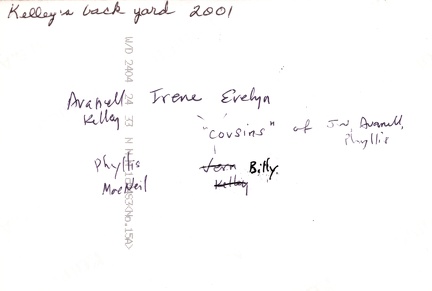 Kelley's back yard 2001
Avanell Irene Evelyn
Kelley
"cousins" of J.W. Avanell,
Phyllis
Phyllis Vern Billy.
MacNeil Kelley
W/D 2404 24 33 N N
<No.15A>